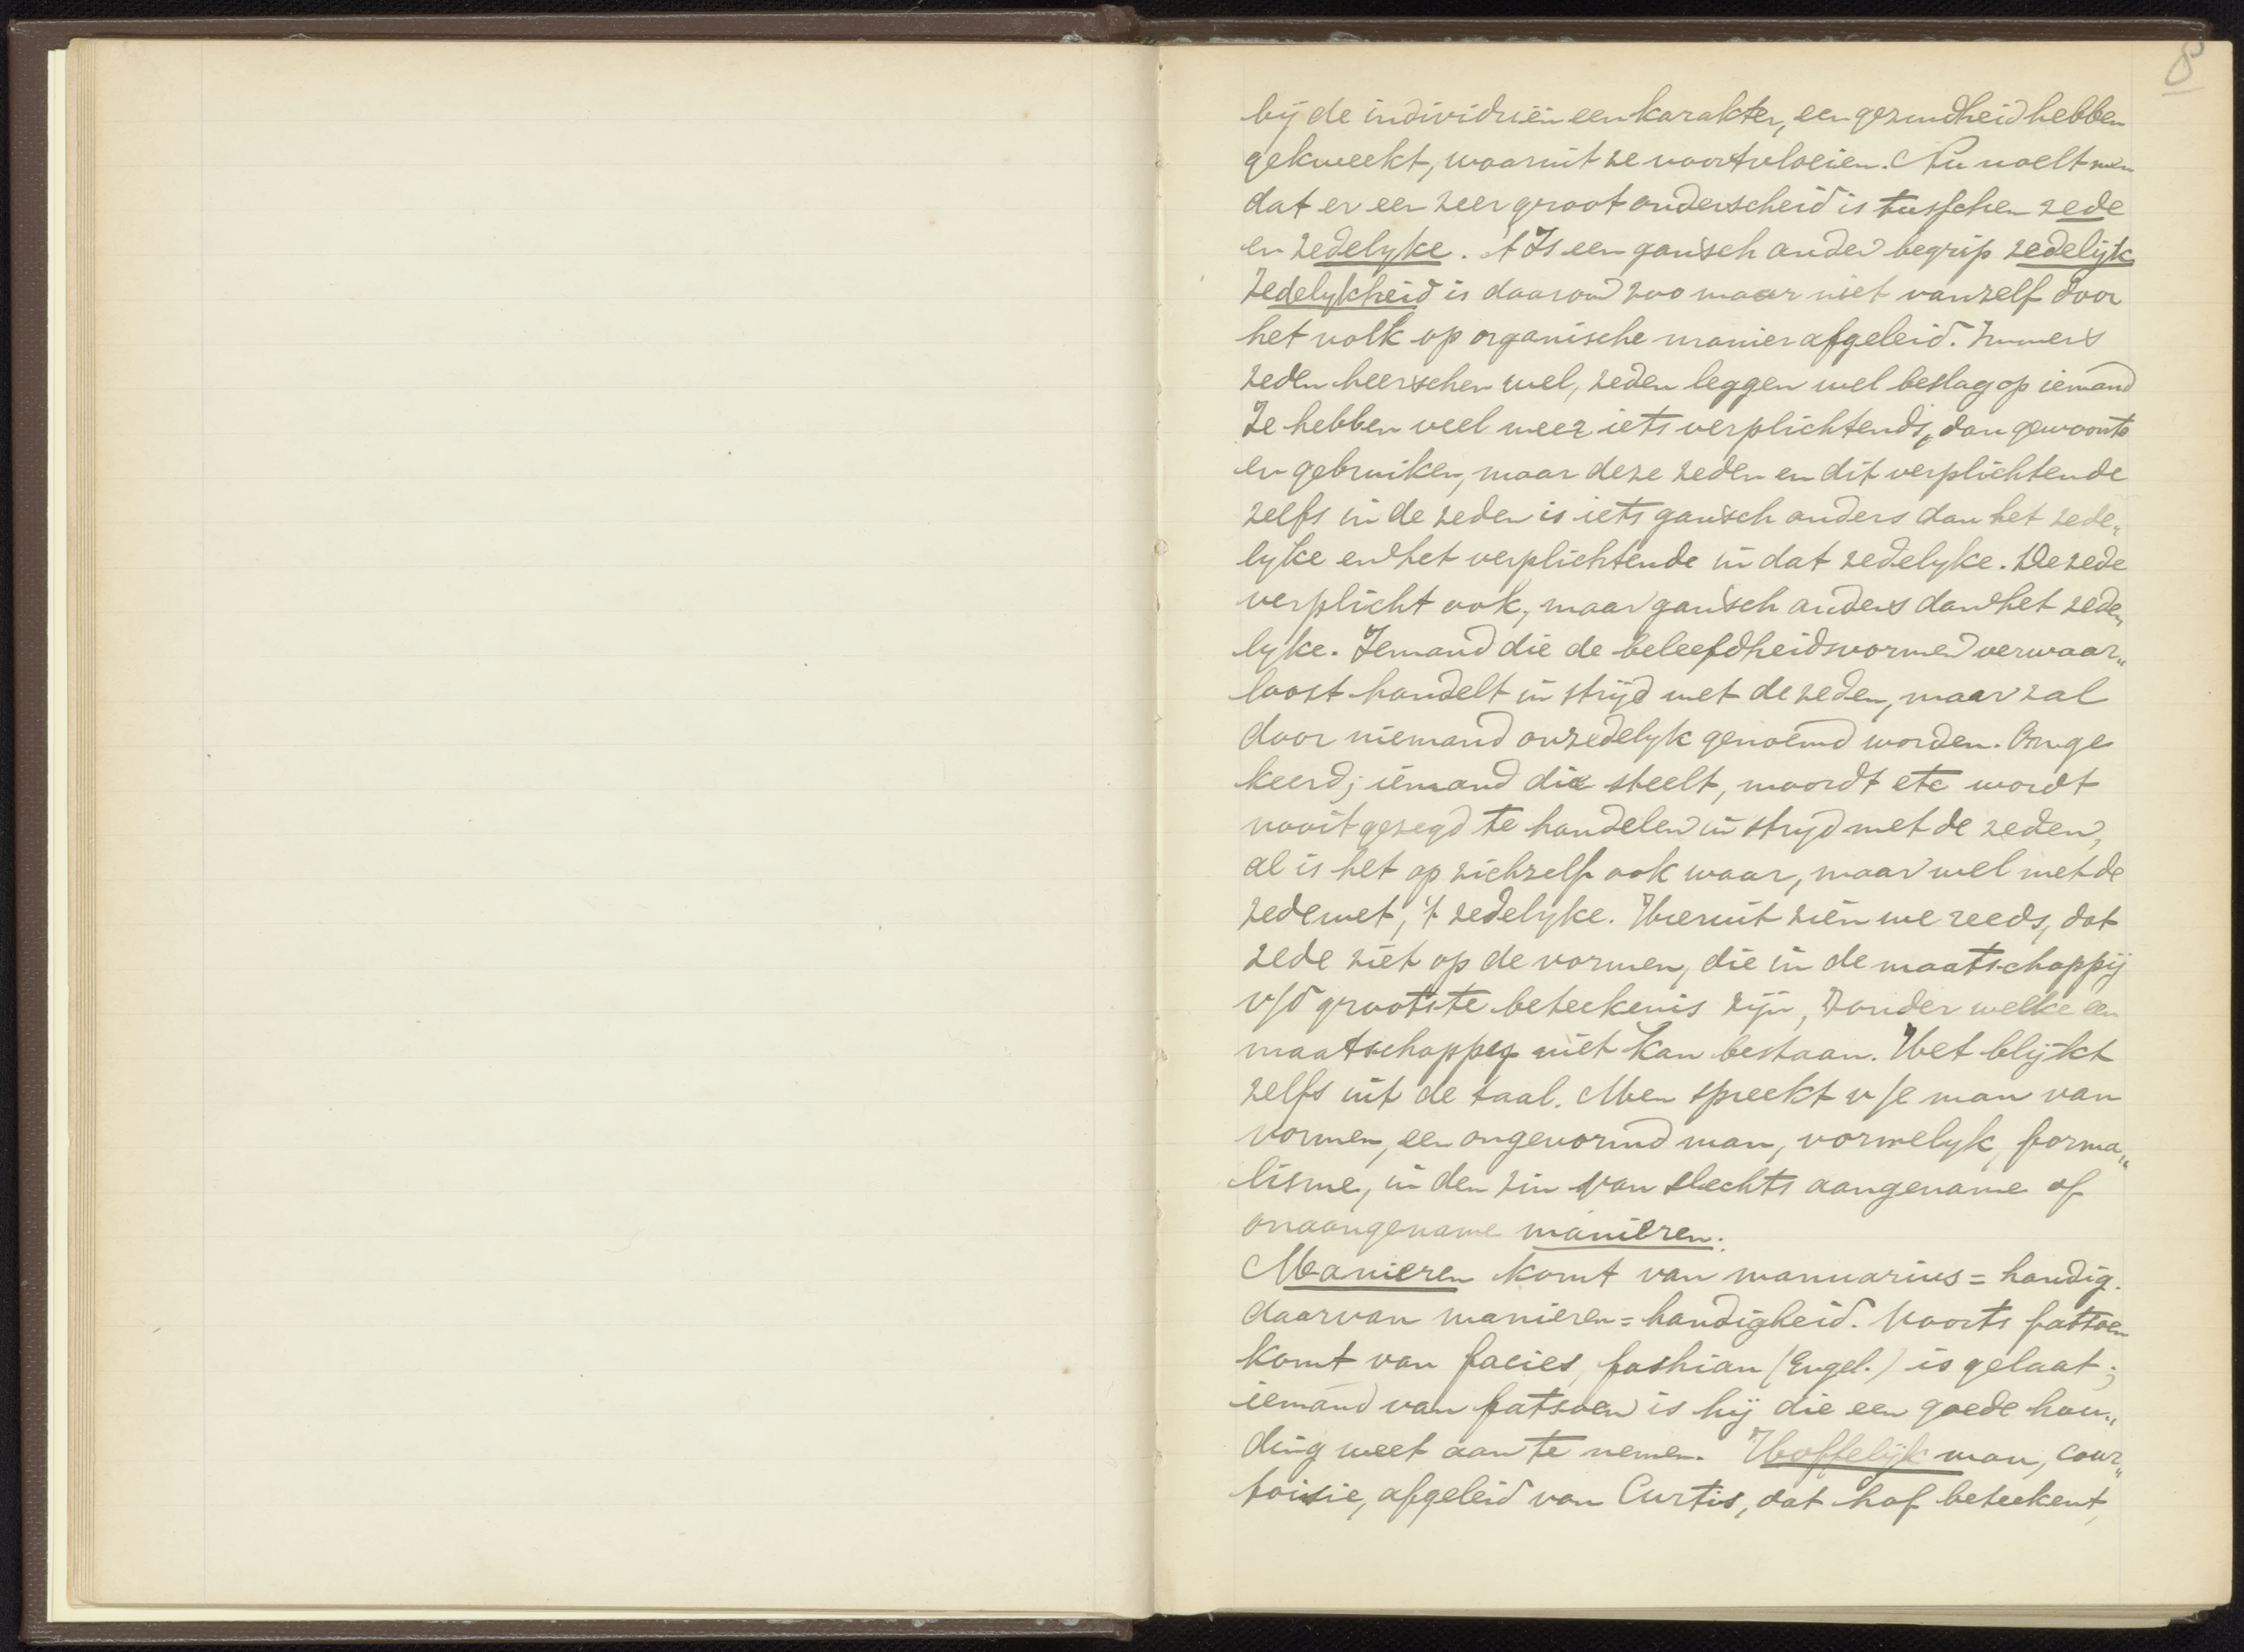 8
bij de individuën een karakter, een gezindheid hebben
gekweekt, waaruit ze voortvloeien. Nu voelt men
dat er een zeer groot onderscheid is tusschen zede
en zedelyke. 't Is een gansch ander begrip zedelijk
Zedelykheid is daarom zoo maar niet vanzelf door
het volk op organische manier afgeleid. Immers
zeden heerschen wel, zeden leggen wel beslag op iemand
Ze hebben veel meer iets verplichtends, dan gewoonte
en gebruiken, maar deze zeden en dit verplichtende
zelfs in de zeden is iets gansch anders dan het zede„
lyke en het verplichtende in dat zedelyke. De zede
verplicht ook, maar gansch anders dan het zede„
lyke. Iemand die de beleefdheidsvormen verwaar„
loost handelt in strijd met de zeden, maar zal
door niemand onzedelyk genoemd worden. Omge
keerd; iemand die steelt, moordt etc wordt
nooit gezegd te handelen in stryd met de zeden,
al is het op zichzelf ook waar, maar wel met de
zedewet, 't zedelyke. Hieruit zien we reeds, dat
zede ziet op de vormen, die in de maatschappij
v/d grootste beteekenis zijn, zonder welke een
maatschappy niet kan bestaan. Het blijkt
zelfs uit de taal. Men spreekt v/e man van
vormen, een ongevormd man, vormelyk, forma„
lisme, in den zin van slechts aangename of
onaangename manieren.
Manieren komt van manuarius = handig.
daarvan manieren = handigheid. Voorts fatsoen
komt van facies, fashian (Engel.) is gelaat;
iemand van fatsoen is hij die een goede hou„
ding weet aan te nemen. Hoffelijk man, cour„
toisie, afgeleid van Curtis, dat hof beteekent,